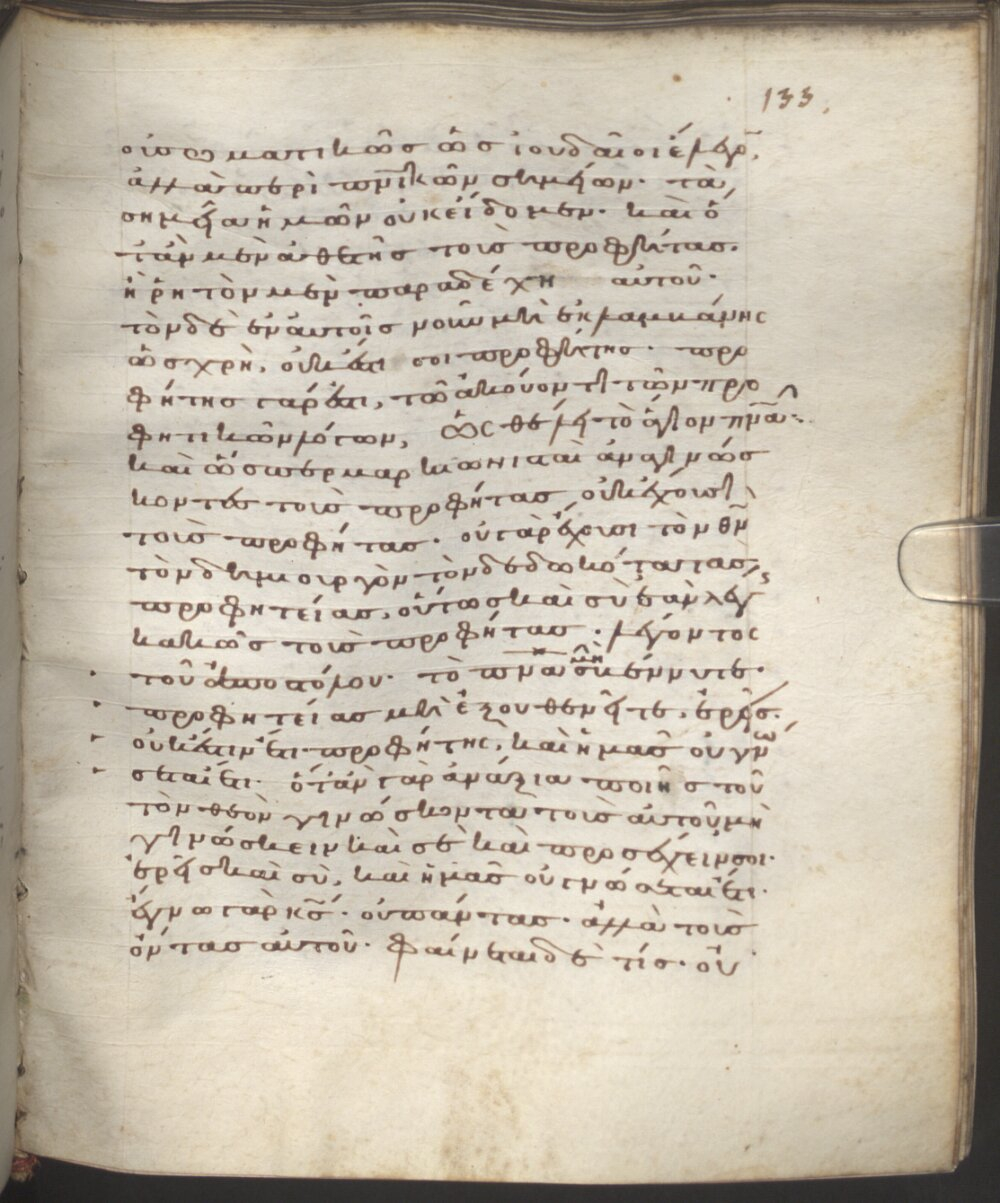 133.
οὐ σωματικῶς ὡς ἰουδαῖοι ἔλεγο̅,
ἀλλὰ περὶ πν̅ικῶν σημείων· τὰ
σημεῖα ἡμῶν οὐκ εἴδομεν· καὶ ὅ
τὰν μὲν ἀθετῆς τοὺς προφήτας.
ἢ ῥητὸν μὲν παραδέχη αὐτοῦ·
τὸν δὲ ἐν αὐτοῖς νοῦν μὴ ἐκλαμβάνης
ὡς χρὴ, οὐκ ἔστι σοι προφήτης· προ
φήτης γάρ ἐστι, τῶ ἀκούοντι τῶν προ
φητικῶν λόγων, ὡς θέλει τὸ ἅγιον πν̅α·
καὶ ὥσπερ μαρκιωνισταὶ ἀναγινώσ
κοντες τοὺς προφήτας, οὐκ ἔχουσι
τοὺς προφήτας· οὐ γὰρ ἔχουσι τὸν θν̅
τὸν δημιουργὸν τὸν δεδωκότα τὰς
προφητείας, οὕτως καὶ σὺ ἐὰν λέγ
κακῶς τοὺς προφήτας· λέγοντος
τοῦ ἀποστόλου· τὸ πν̅α μὴ σβέννυτε·
προφητείας μὴ ἐξουθενεῖτε, ἐρεῖς.
οὐκ ἔστιν ἔτι προφήτης, καὶ ἡμᾶς οὐ γνώ
σεται ἔτι· ὅταν γὰρ ἀνάξια ποιῆς τοῦ
τὸν θεὸν γινώσκοντα τοὺς αὐτοῦ μὴ
γινώσκειν καὶ σὲ καὶ προσέχειν σοι·
ἐρεῖς καὶ σὺ, καὶ ἡμᾶς οὐ γνώσεται ἔτι·
ἔγνω γὰρ κς̅· οὐ πάντας· ἀλλὰ τοὺς
ὄντας αὐτοῦ· φαίνεται δέ τις· οὐ